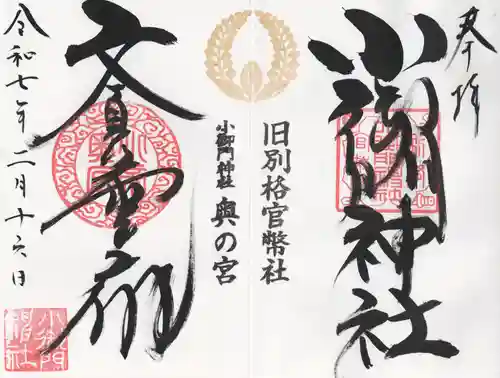 奉拝
小御門神社
旧別格官幣社
小御門神社 奥の宮
文貞霊廟
令和七年二月十六日
小御門
神社